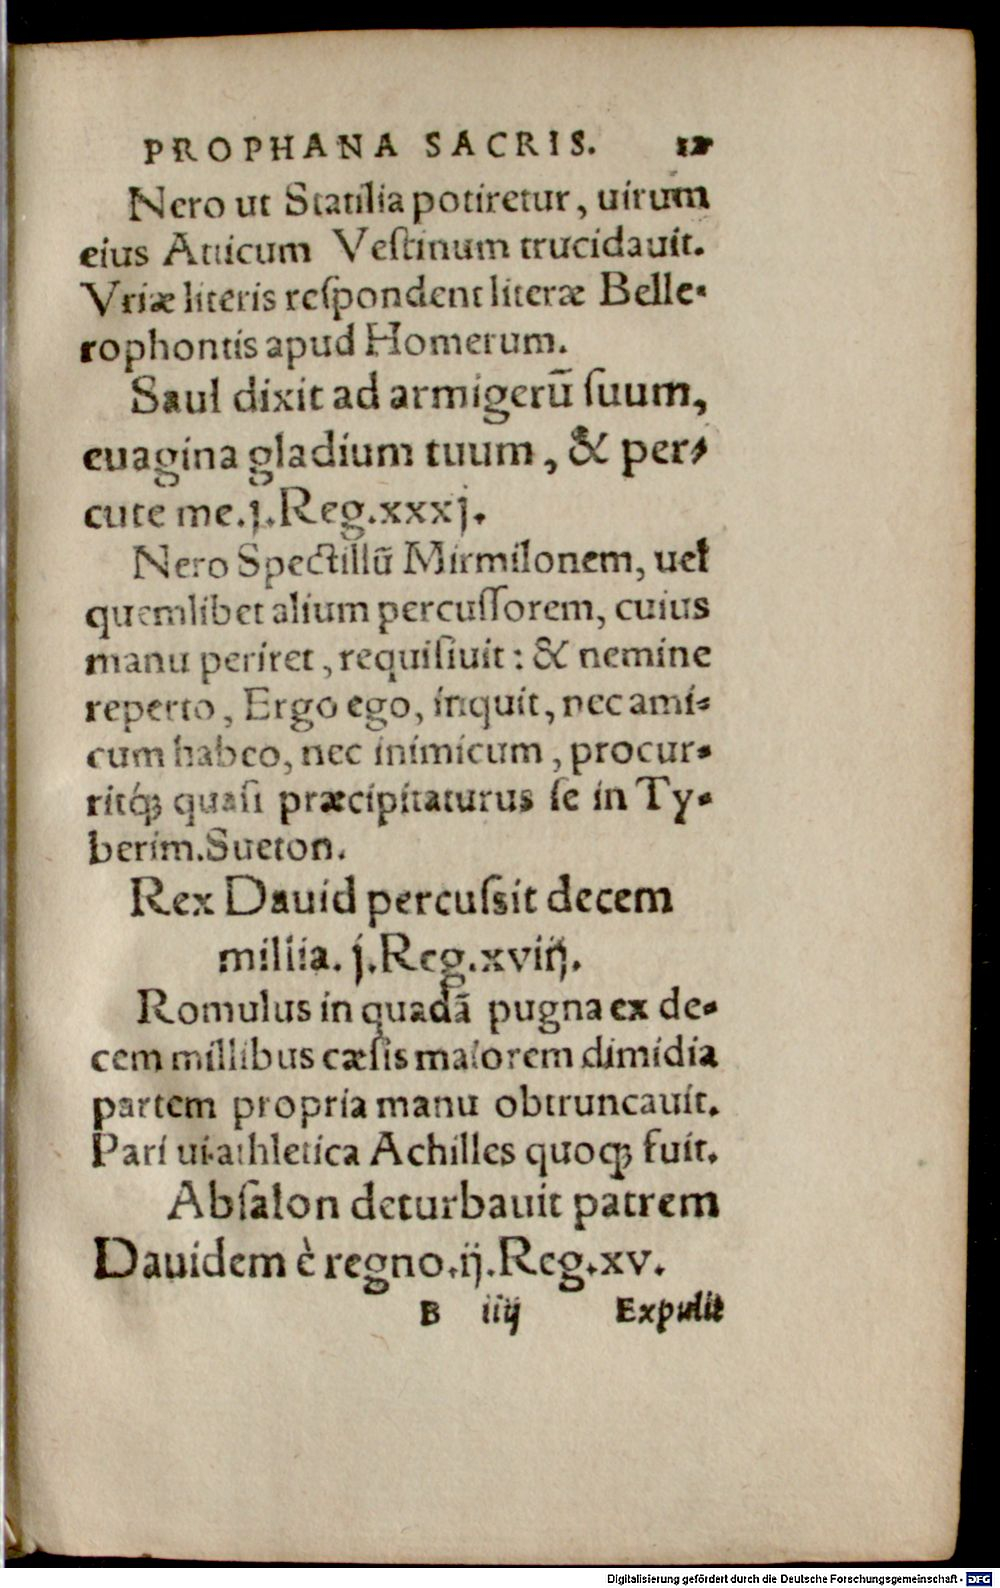 PROPHANA SACRIS. 12
Nero ut Statilia potiretur, uirum
eius Atticum Veſtinum trucidauit.
Vriæ literis reſpondent literæ Belle-
rophontis apud Homerum.
Saul dixit ad armigerū ſuum,
euagina gladium tuum, & per-
cute me. j. Reg. xxxj.
Nero Spectillū Mirmilonem, uel
quemlibet alium percuſſorem, cuius
manu periret, requiſiuit: & nemine
reperto, Ergo ego, inquit, nec ami-
cum habeo, nec inimicum, procur-
ritq́ꝫ quaſi præcipitaturus ſe in Ty-
berim. Sueton.
Rex Dauid percuſsit decem
millia. j. Reg. xviij.
Romulus in quadā pugna ex de-
cem millibus cæſis maiorem dimidia
partem propria manu obtruncauit.
Pari ui athletica Achilles quoqꝫ fuit.
Abſalon deturbauit patrem
Dauidem è regno. ij. Reg. xv.
B iiij Expulit
Digitalisierung gefördert durch die Deutsche Forschungsgemeinschaft - DFG